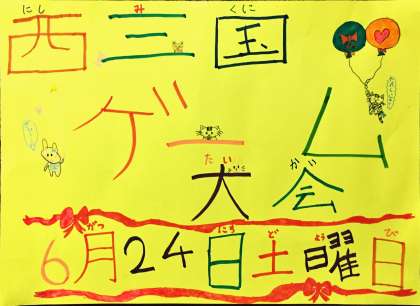 にし み くに
西三国
ゲーム
たい かい
大会
がつ にち ど よう び
6月24日土曜日